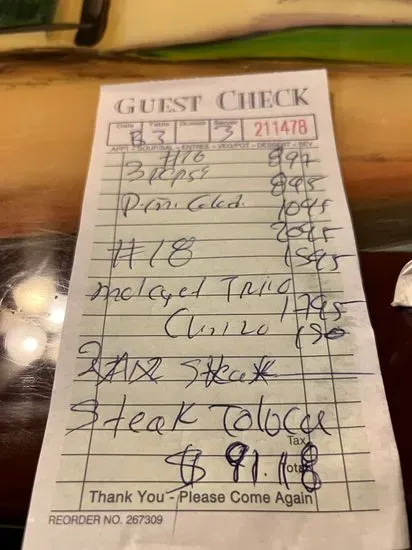 GUEST CHECK
Date Table Guests Server
B3 3 211478
APPT - SOUP/SAL - ENTREE - VEG/POT - DESSERT - BEV
#16 897
3 pepsi 895
1095
2095
#18 1595
1795
190
Steak
Steak Toluca
Tax
$ 91.18
Total
Thank You - Please Come Again
REORDER NO. 267309